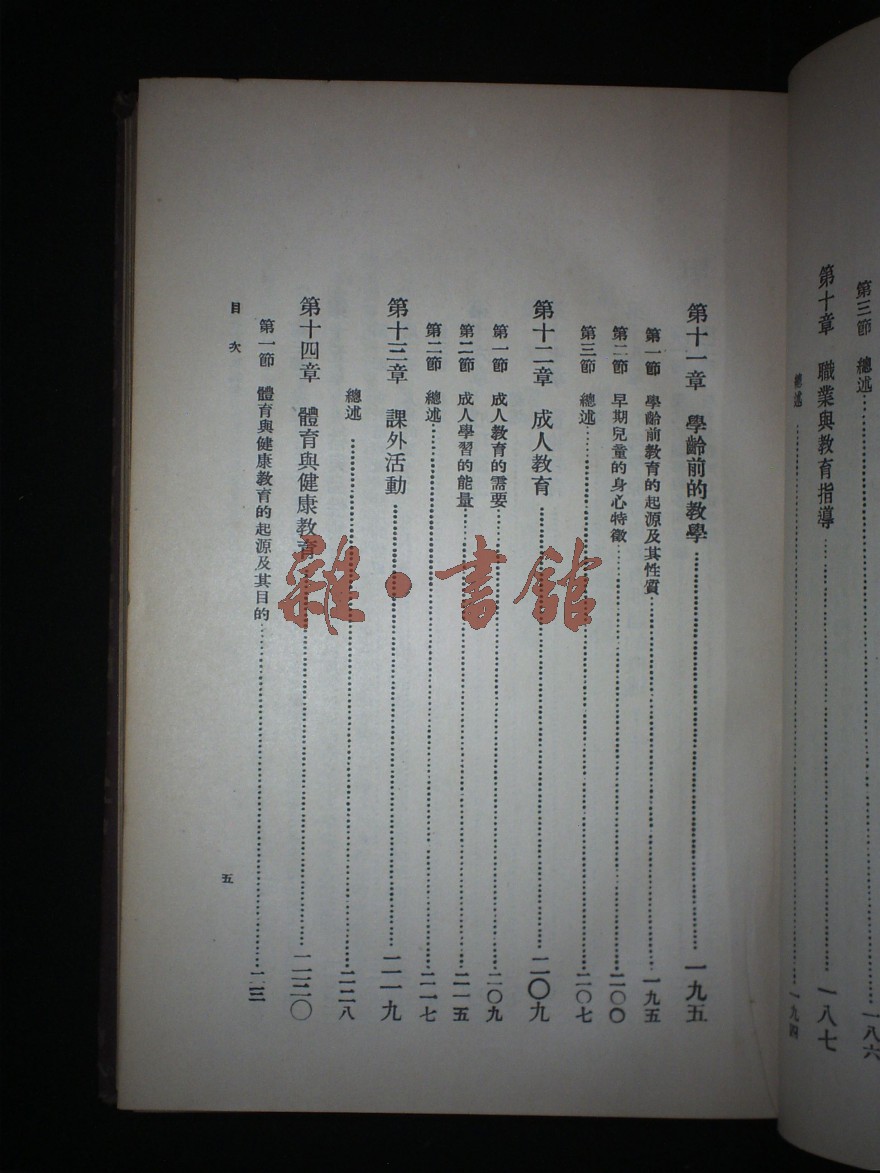 第三節 總述……一八六
第十章 職業與教育指導……一八七
總述……一九四
第十一章 學齡前的教學……一九五
第一節 學齡前教育的起源及其性質……一九五
第二節 早期兒童的身心特徵……二〇〇
第三節 總述……二〇七
第十二章 成人教育……二〇九
第一節 成人教育的需要……二〇九
第二節 成人學習的能量……二一五
第二節 總述……二一七
第十三章 課外活動……二一九
總述……二二八
第十四章 體育與健康教育……
第一節 體育與健康教育的起源及其目的……
目次
五
雜·書館